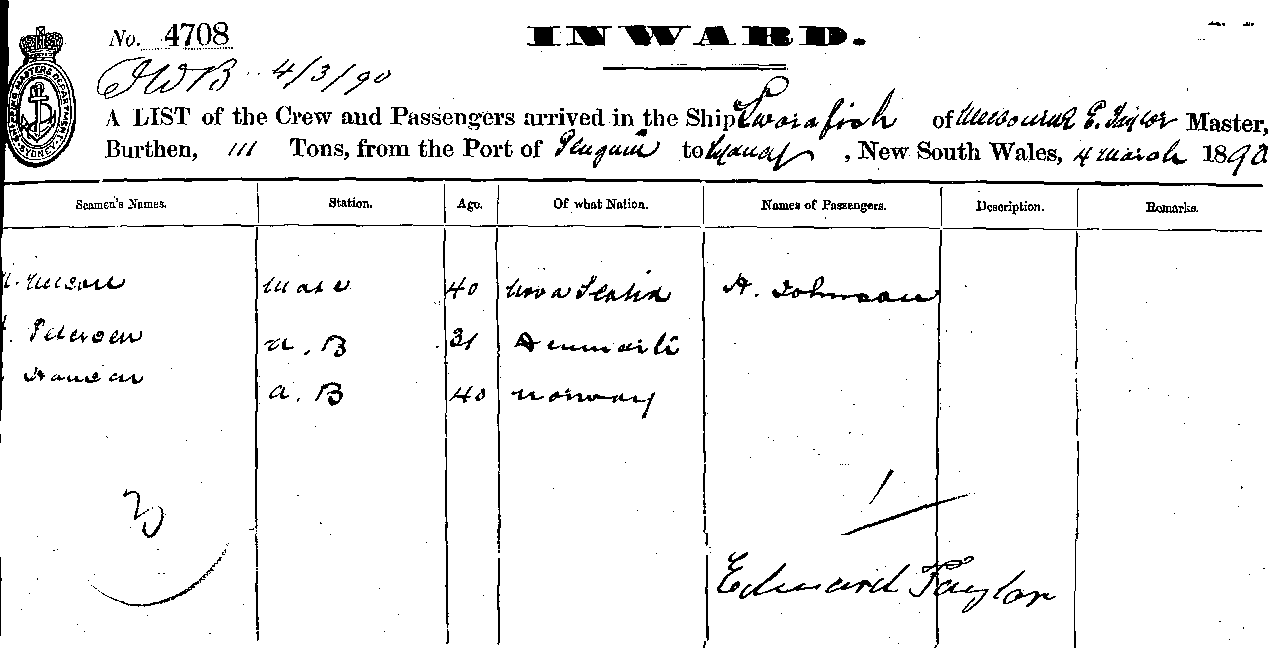 No. 4708
INWARD.
JWB 4/3/90
A LIST of the Crew and Passengers arrived in the Ship Swordfish of Melbourne E. Taylor Master,
Burthen, 111 Tons, from the Port of Penguin to Sydney, New South Wales, 4 March 1890
Seamen's Names. Station. Age. Of what Nation. Names of Passengers. Description. Remarks.
Mate 40 Nova Scotia A. Johnson
Petersen A. B 31 Denmark
Hansen A. B 40 Norway
3 1
Edward Taylor